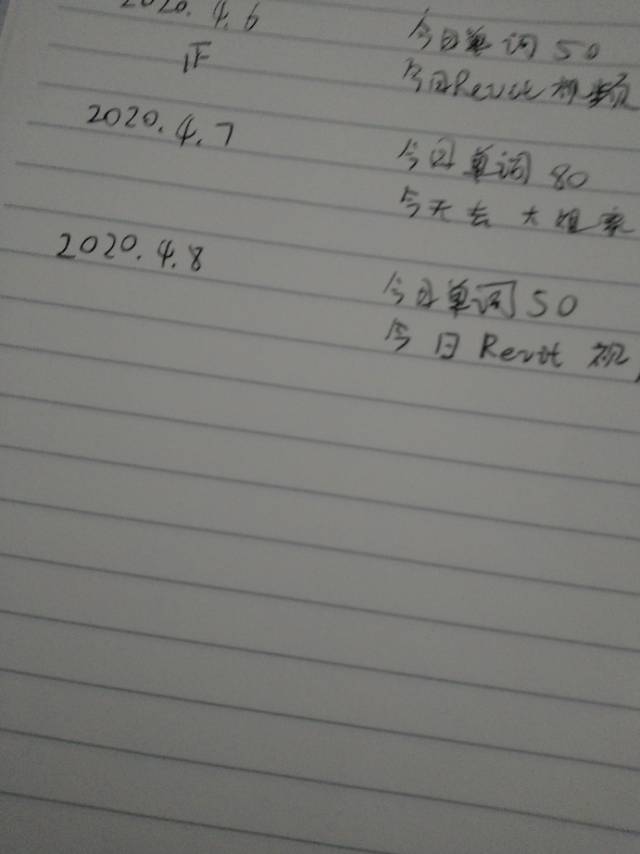 2020.4.6
今日单词 50
正
今日Revit 视频
2020.4.7
今日单词 80
今天去 大姐家
2020.4.8
今日单词 50
今日 Revit 视